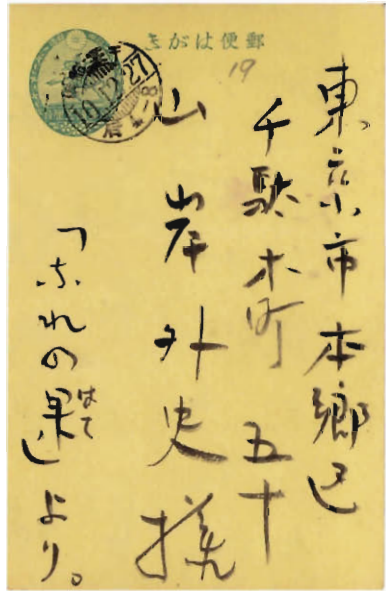 郵便はがき
19
10.12.27
東京市本郷区
千駄木町 五十
山岸外史様
「なれの果(はて)」より。